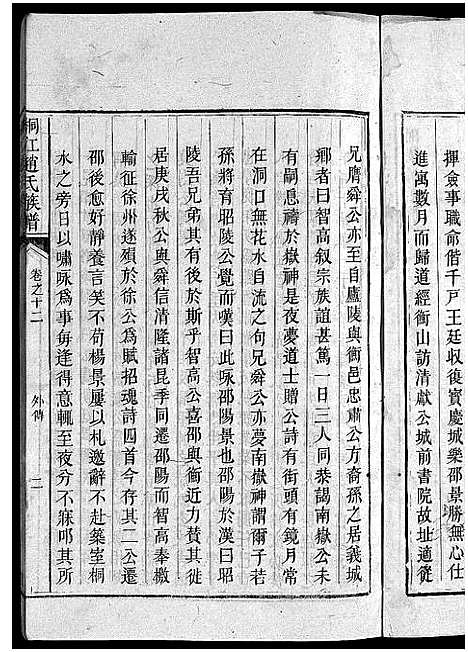 揮僉事職命偕千戸王廷収復寳慶城樂邵景勝無心仕
進寓數月而歸道經衡山訪清獻公城前書院故址適從
兄膺舜公亦至自廬陵與衡邑忠肅公方裔孫之居義城
鄉者曰智高叙宗族誼甚篤一日三人同恭謁南嶽公未
有嗣息禱於嶽神是夜夢道士贈公詩有街頭有鏡月常
在洞口無花水自流之句兄舜公亦夢南嶽神謂爾子若
孫將育昭陵公覺而嘆曰此咏邵陽景也邵陽於漢曰昭
陵吾兄弟其有後於斯乎智高公喜邵與衡近力贊其徙
居庚戌秋公與舜信清隆諸昆季同遷邵陽而智高奉檄
輸征徐州遂殞於徐公爲賦招魂詩四首今存其二公遷
邵後愈好靜養言笑不苟楊景屢以札邀辭不赴築室桐
水之旁日以嘯咏爲事每逢得意輒至夜分不寐叩其所
桐江趙氏族譜
卷之十二
外傳
二